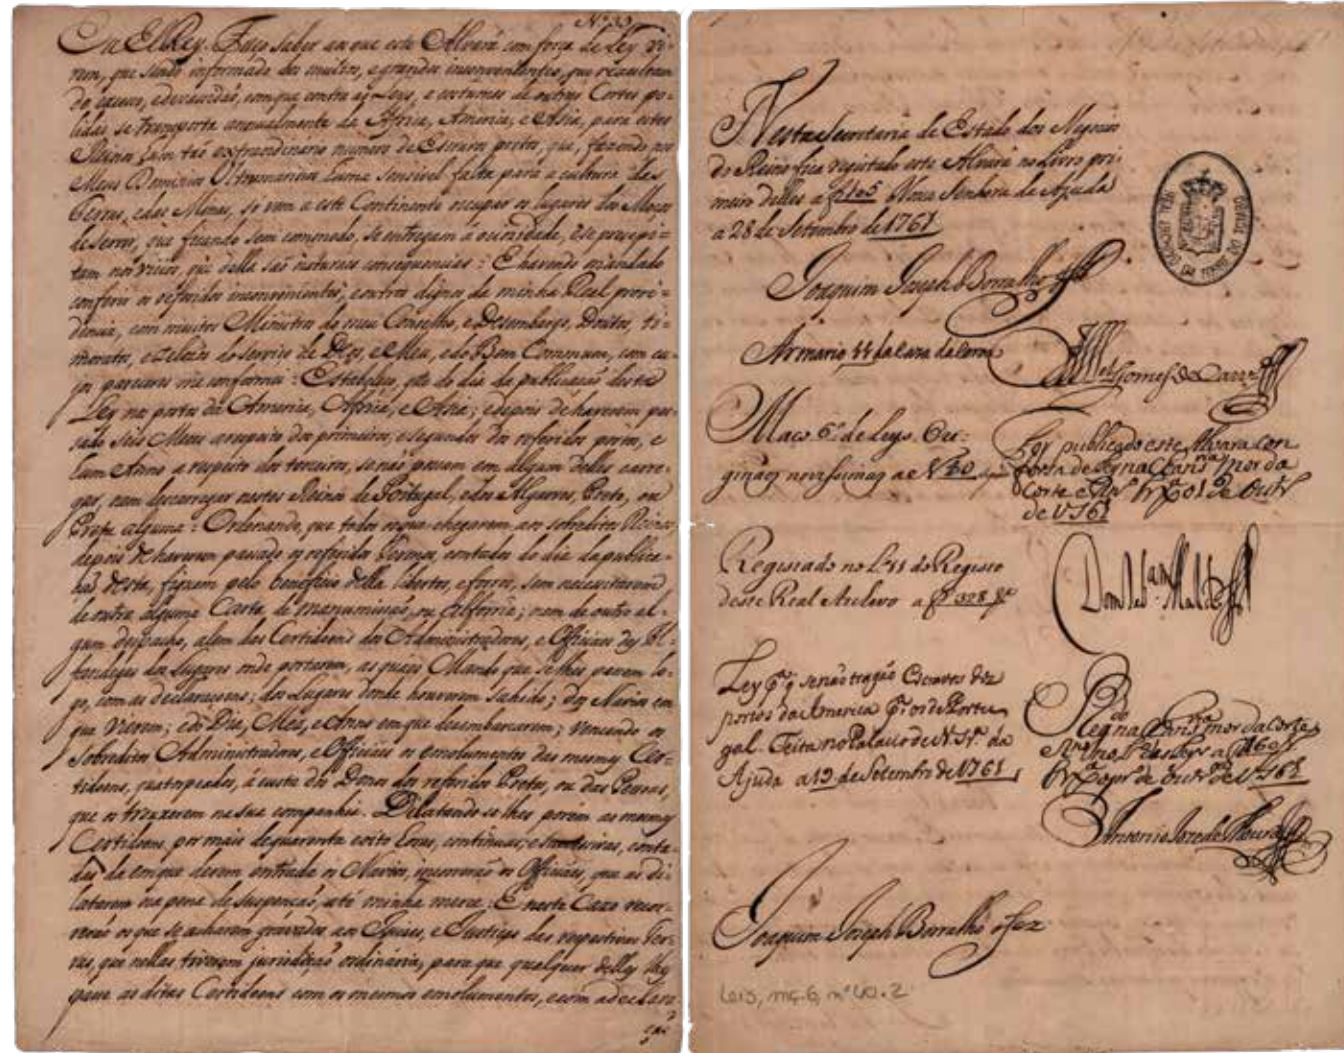 N.º 39
Eu ElRey. Faço saber aos que este Alvará com força de Ley vi-
rem, que sendo informado dos muitos, e grandes inconvenientes, que resultam
do excesso, e devassidaõ, com que contra as Leys, e costumes de outras Cortes po-
lidas se transporta annualmente da Africa, America, e Asia, para estes
Reinos hum taõ extraordinario numero de Escravos pretos, que, fazendo nos
Meus Dominios Ultramarinos huma sensivel falta para a cultura das
Terras, e das Minas, só vem a este Continente occupar os lugares dos Moços
de servir, que ficando sem commodo, se entregam á ociosidade, e se precipi-
tam nos vicios, que della saõ naturaes consequencias: E havendo mandado
conferir os referidos inconvenientes, e outros dignos da minha Real provi-
dencia, com muitos Ministros do meu Conselho, e Desembargo, Doutos, ti-
moratos, e zelosos do serviço de Deos, e Meu, e do Bem Commum, com cu-
jos pareceres me conformei: Estabeleço, que do dia da publicaçaõ desta
Ley nos portos da America, Africa, e Asia; e depois de haverem pas-
sado seis Mezes a respeito dos primeiros, e segundos dos referidos portos, e
hum Anno a respeito dos terceiros, se naõ possam em algum delles carre-
gar, nem descarregar nestes Reinos de Portugal, e dos Algarves, Preto, ou
Preta alguma: Ordenando, que todos os que chegarem aos sobreditos Reinos,
depois de haverem passado os referidos Termos, contados do dia da publica-
çaõ desta, fiquem pelo beneficio della libertos, e forros, sem necessitarem
de outra alguma Carta de manumissaõ, ou Alforria; nem de outro al-
gum despacho, alem das Certidoens dos Administradores, e Officiaes das Al-
fandegas dos lugares onde portarem, as quaes Mando que se lhes passem lo-
go, com as declaraçoens; dos Lugares donde houverem sahido; dos Navios em
que vierem; e do Dia, Mez, e Anno em que desembarcarem; vencendo os
sobreditos Administradores, e Officiaes os emolumentos das mesmas Cer-
tidoens, quatropeados, á custa dos Donos dos referidos Pretos, ou das Pessoas,
que os trouxerem na sua companhia. Dilatando-se-lhes porém as mesmas
Certidoens por mais de quarenta e oito horas continuas, e successivas, conta-
das da em que derem entrada os Navios, incorreráõ os Officiaes, que as di-
latarem na pena de suspençaõ, até minha merce: E neste Cazo recor-
reráõ os que se acharem gravados aos Juizes, e Justiças das respectivas Ter-
ras, que nellas tiverem jurisdiçaõ ordinaria, para que qualquer delles lhes
passe as ditas Certidoens com os mesmos emolumentos, e com a declara-
çaõ
Nesta Secretaria de Estado dos Negocios
do Reino fica registado este Alvará no Livro pri-
meiro delles a f 105 Nossa Senhora da Ajuda
a 28 de Setembro de 1761
Joaquim Joseph Borralho
Armario 11 da Caza da Coroa
Maço 6.º de Leys Ori-
ginaes a N.º 40
Foy publicado este Alvará com
força de Ley na Chanc.ª mor da
Corte e
de 1761
Registado no L.º 11 do Registo
deste Real Archivo a f 328
Ley p.ª q senão tragão Escravos dos
portos da America p.ª os de Portu-
gal. Feita no Palacio de N. Sr.ª da
Ajuda a 19 de Setembro de 1761
Reg.do na Chanc.ª mor da Corte
e Rn.º no L.º das Leys a f 160
de 1761
Antonio Joze de Moura
Joaquim Joseph Borralho o fez
Leis, mç. 6, nº 40.2